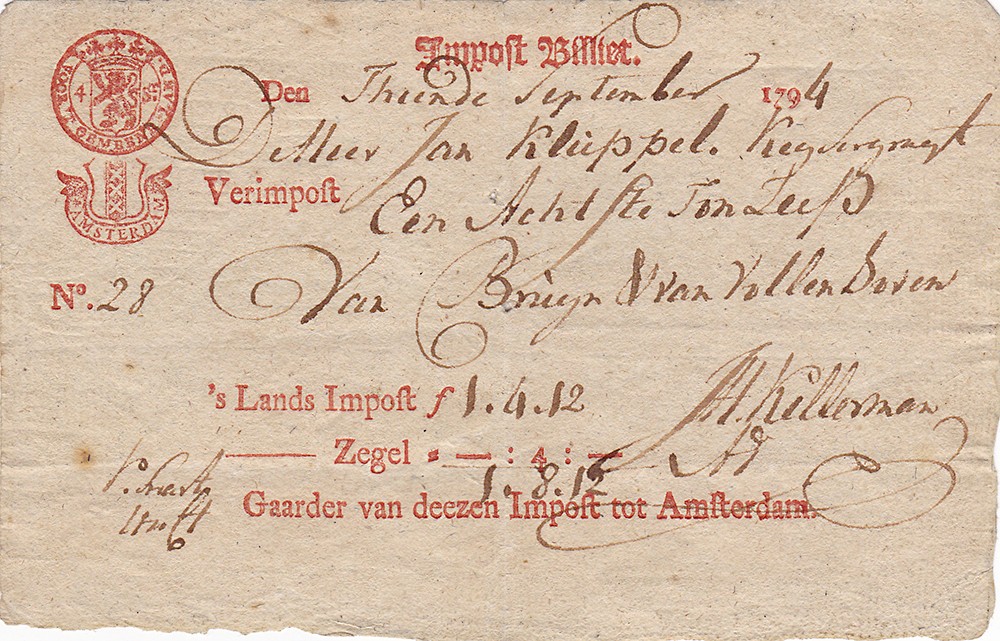 Impost Billiet.
Den Thiende September 1794
De Heer Jan Kluppel. Keysersgragt
Verimpost Een Achtste Ton Zeep
No. 28 Van Bruyn & van Vollenhoven
's Lands Impost f 1.4.12
Zegel - — : 4 : —
1.8.12
JH Killerman
Gaarder van deezen Impost tot Amsterdam.
VOOR 'T GEMEENE LAND
4 St
AMSTERDAM